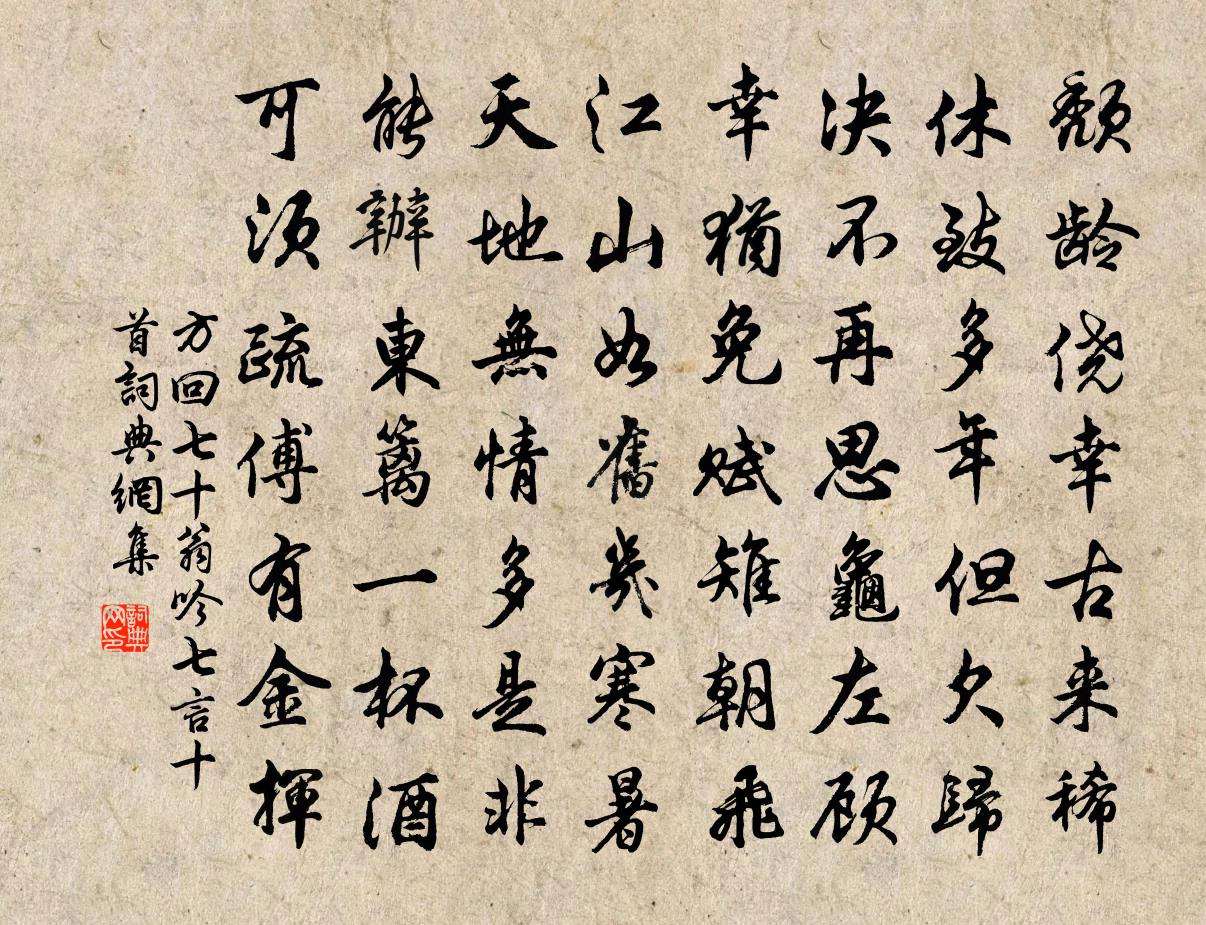 颓龄侥幸古来稀
休致多年但欠歸
决不再思龜左顾
幸猶免赋雉朝飛
江山如舊幾寒暑
天地無情多是非
能辦東籬一杯酒
可须疏傅有金揮
方回七十翁吟七言十
首詞典網集
詞典网印